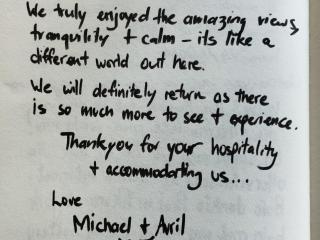 We truly enjoyed the amazing views,
tranquility + calm - its like a
different world out here.
We will definitely return as there
is so much more to see + experience.
Thankyou for your hospitality
+ accommodating us...
Love
Michael + Avril